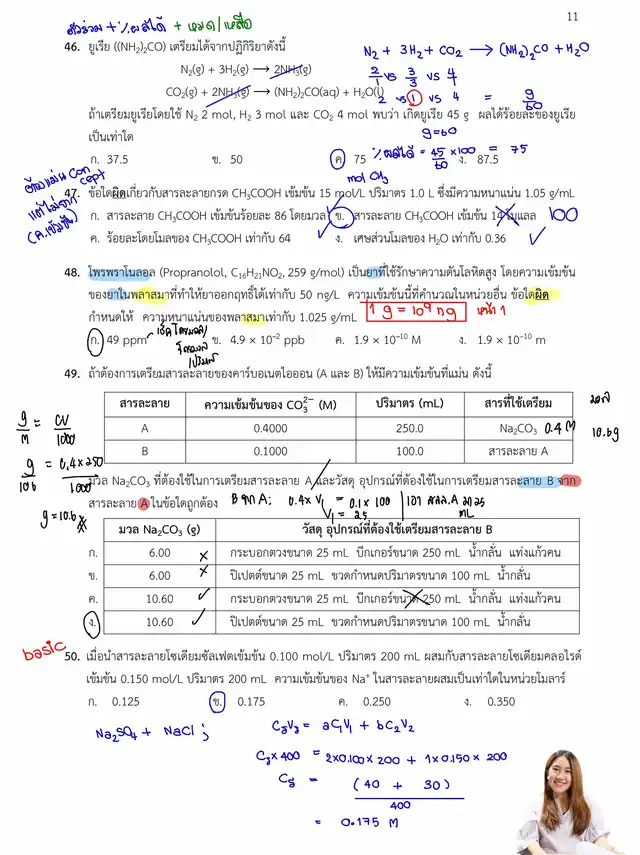 ตัวร่วม + % ผลได้ + หมด/เหลือ
11
46. ยูเรีย ((NH₂)₂CO) เตรียมได้จากปฏิกิริยาดังนี้
N₂ + 3H₂ + CO₂ → (NH₂)₂CO + H₂O
N₂(g) + 3H₂(g) ⟶ 2NH₃(g)
2/1 vs 3/3 vs 4/1
CO₂(g) + 2NH₃(g) ⟶ (NH₂)₂CO(aq) + H₂O(l)
2 vs 1 vs 4 = g/60
ถ้าเตรียมยูเรียโดยใช้ N₂ 2 mol, H₂ 3 mol และ CO₂ 4 mol พบว่า เกิดยูเรีย 45 g ผลได้ร้อยละของยูเรีย
เป็นเท่าใด
g=60
ก. 37.5 ข. 50 ค. 75 ง. 87.5
% ผลได้ = 45/60 × 100 = 75
47. ข้อใดผิดเกี่ยวกับสารละลายกรด CH₃COOH เข้มข้น 15 mol/L ปริมาตร 1.0 L ซึ่งมีความหนาแน่น 1.05 g/mL
ก. สารละลาย CH₃COOH เข้มข้นร้อยละ 86 โดยมวล ข. สารละลาย CH₃COOH เข้มข้น 14 โมแลล 100
ค. ร้อยละโดยโมลของ CH₃COOH เท่ากับ 64 ง. เศษส่วนโมลของ H₂O เท่ากับ 0.36
48. โพรพราโนลอล (Propranolol, C₁₆H₂₁NO₂, 259 g/mol) เป็นยาที่ใช้รักษาความดันโลหิตสูง โดยความเข้มข้น
ของยาในพลาสมาที่ทำให้ยาออกฤทธิ์ได้เท่ากับ 50 ng/L ความเข้มข้นนี้ที่คำนวณในหน่วยอื่น ข้อใดผิด
กำหนดให้ ความหนาแน่นของพลาสมาเท่ากับ 1.025 g/mL
1 g = 10⁹ ng หน้า 1
ก. 49 ppm ข. 4.9 × 10⁻² ppb ค. 1.9 × 10⁻¹⁰ M ง. 1.9 × 10⁻¹⁰ m
49. ถ้าต้องการเตรียมสารละลายของคาร์บอเนตไอออน (A และ B) ให้มีความเข้มข้นที่แม่น ดังนี้
สารละลาย ความเข้มข้นของ CO₃²⁻ (M) ปริมาตร (mL) สารที่ใช้เตรียม
A 0.4000 250.0 Na₂CO₃ 0.4 M
10.6g
B 0.1000 100.0 สารละลาย A
g/M = CV/1000
g/106 = 0.4×250/1000
g = 10.6
มวล Na₂CO₃ ที่ต้องใช้ในการเตรียมสารละลาย A และวัสดุ อุปกรณ์ที่ต้องใช้ในการเตรียมสารละลาย B จาก
สารละลาย A ในข้อใดถูกต้อง
B จาก A: 0.4×V₁ = 0.1×100
V₁ = 25
mL
มวล Na₂CO₃ (g) วัสดุ อุปกรณ์ที่ต้องใช้เตรียมสารละลาย B
ก. 6.00 กระบอกตวงขนาด 25 mL บีกเกอร์ขนาด 250 mL น้ำกลั่น แท่งแก้วคน
ข. 6.00 ปิเปตต์ขนาด 25 mL ขวดกำหนดปริมาตรขนาด 100 mL น้ำกลั่น
ค. 10.60 กระบอกตวงขนาด 25 mL บีกเกอร์ขนาด 250 mL น้ำกลั่น แท่งแก้วคน
ง. 10.60 ปิเปตต์ขนาด 25 mL ขวดกำหนดปริมาตรขนาด 100 mL น้ำกลั่น
basic
50. เมื่อนำสารละลายโซเดียมซัลเฟตเข้มข้น 0.100 mol/L ปริมาตร 200 mL ผสมกับสารละลายโซเดียมคลอไรด์
เข้มข้น 0.150 mol/L ปริมาตร 200 mL ความเข้มข้นของ Na⁺ ในสารละลายผสมเป็นเท่าใดในหน่วยโมลาร์
ก. 0.125 ข. 0.175 ค. 0.250 ง. 0.350
Na₂SO₄ + NaCl ;
C₃V₃ = aC₁V₁ + bC₂V₂
C₃×400 = 2×0.100×200 + 1×0.150×200
C₃ = (40 + 30)/400
= 0.175 M